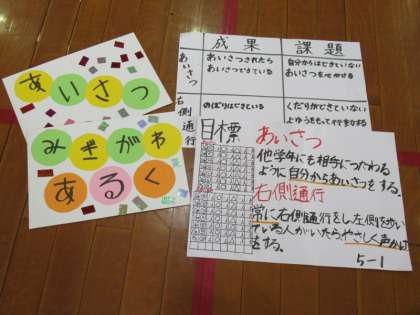 あいさつ
みぎがわ
あるく
成果 課題
あいさつ
あいさつされたら
あいさつできている
自分からはできていない
あいさつを心がける
右側通行
のぼりはできている
くだりができていない
目標
あいさつ
他学年にも相手につたわる
ように自分からあいさつをする。
右側通行
常に右側通行をし、左側を歩い
ている人がいたらやさしく声かけ
をする。
5-1